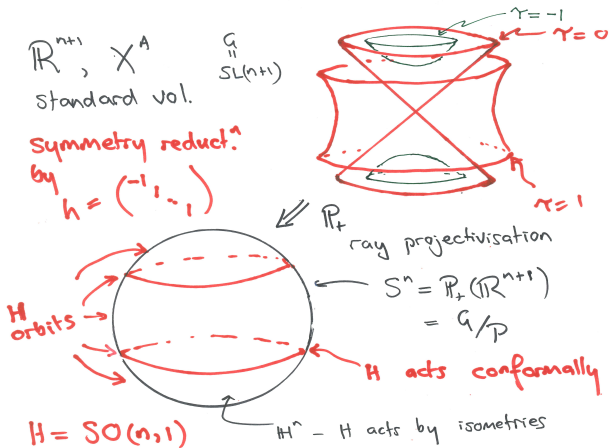 ℝⁿ⁺¹, X^A
standard vol.
G
=
SL(n+1)
τ=-1
τ=0
τ=1
symmetry reductⁿ.
by
h = (⁻¹ 1 ⋱ 1)
ℙ₊
ray projectivisation
Sⁿ = ℙ₊(ℝⁿ⁺¹)
= G/P
H
orbits
H acts conformally
ℍⁿ – H acts by isometries
H = SO(n,1)